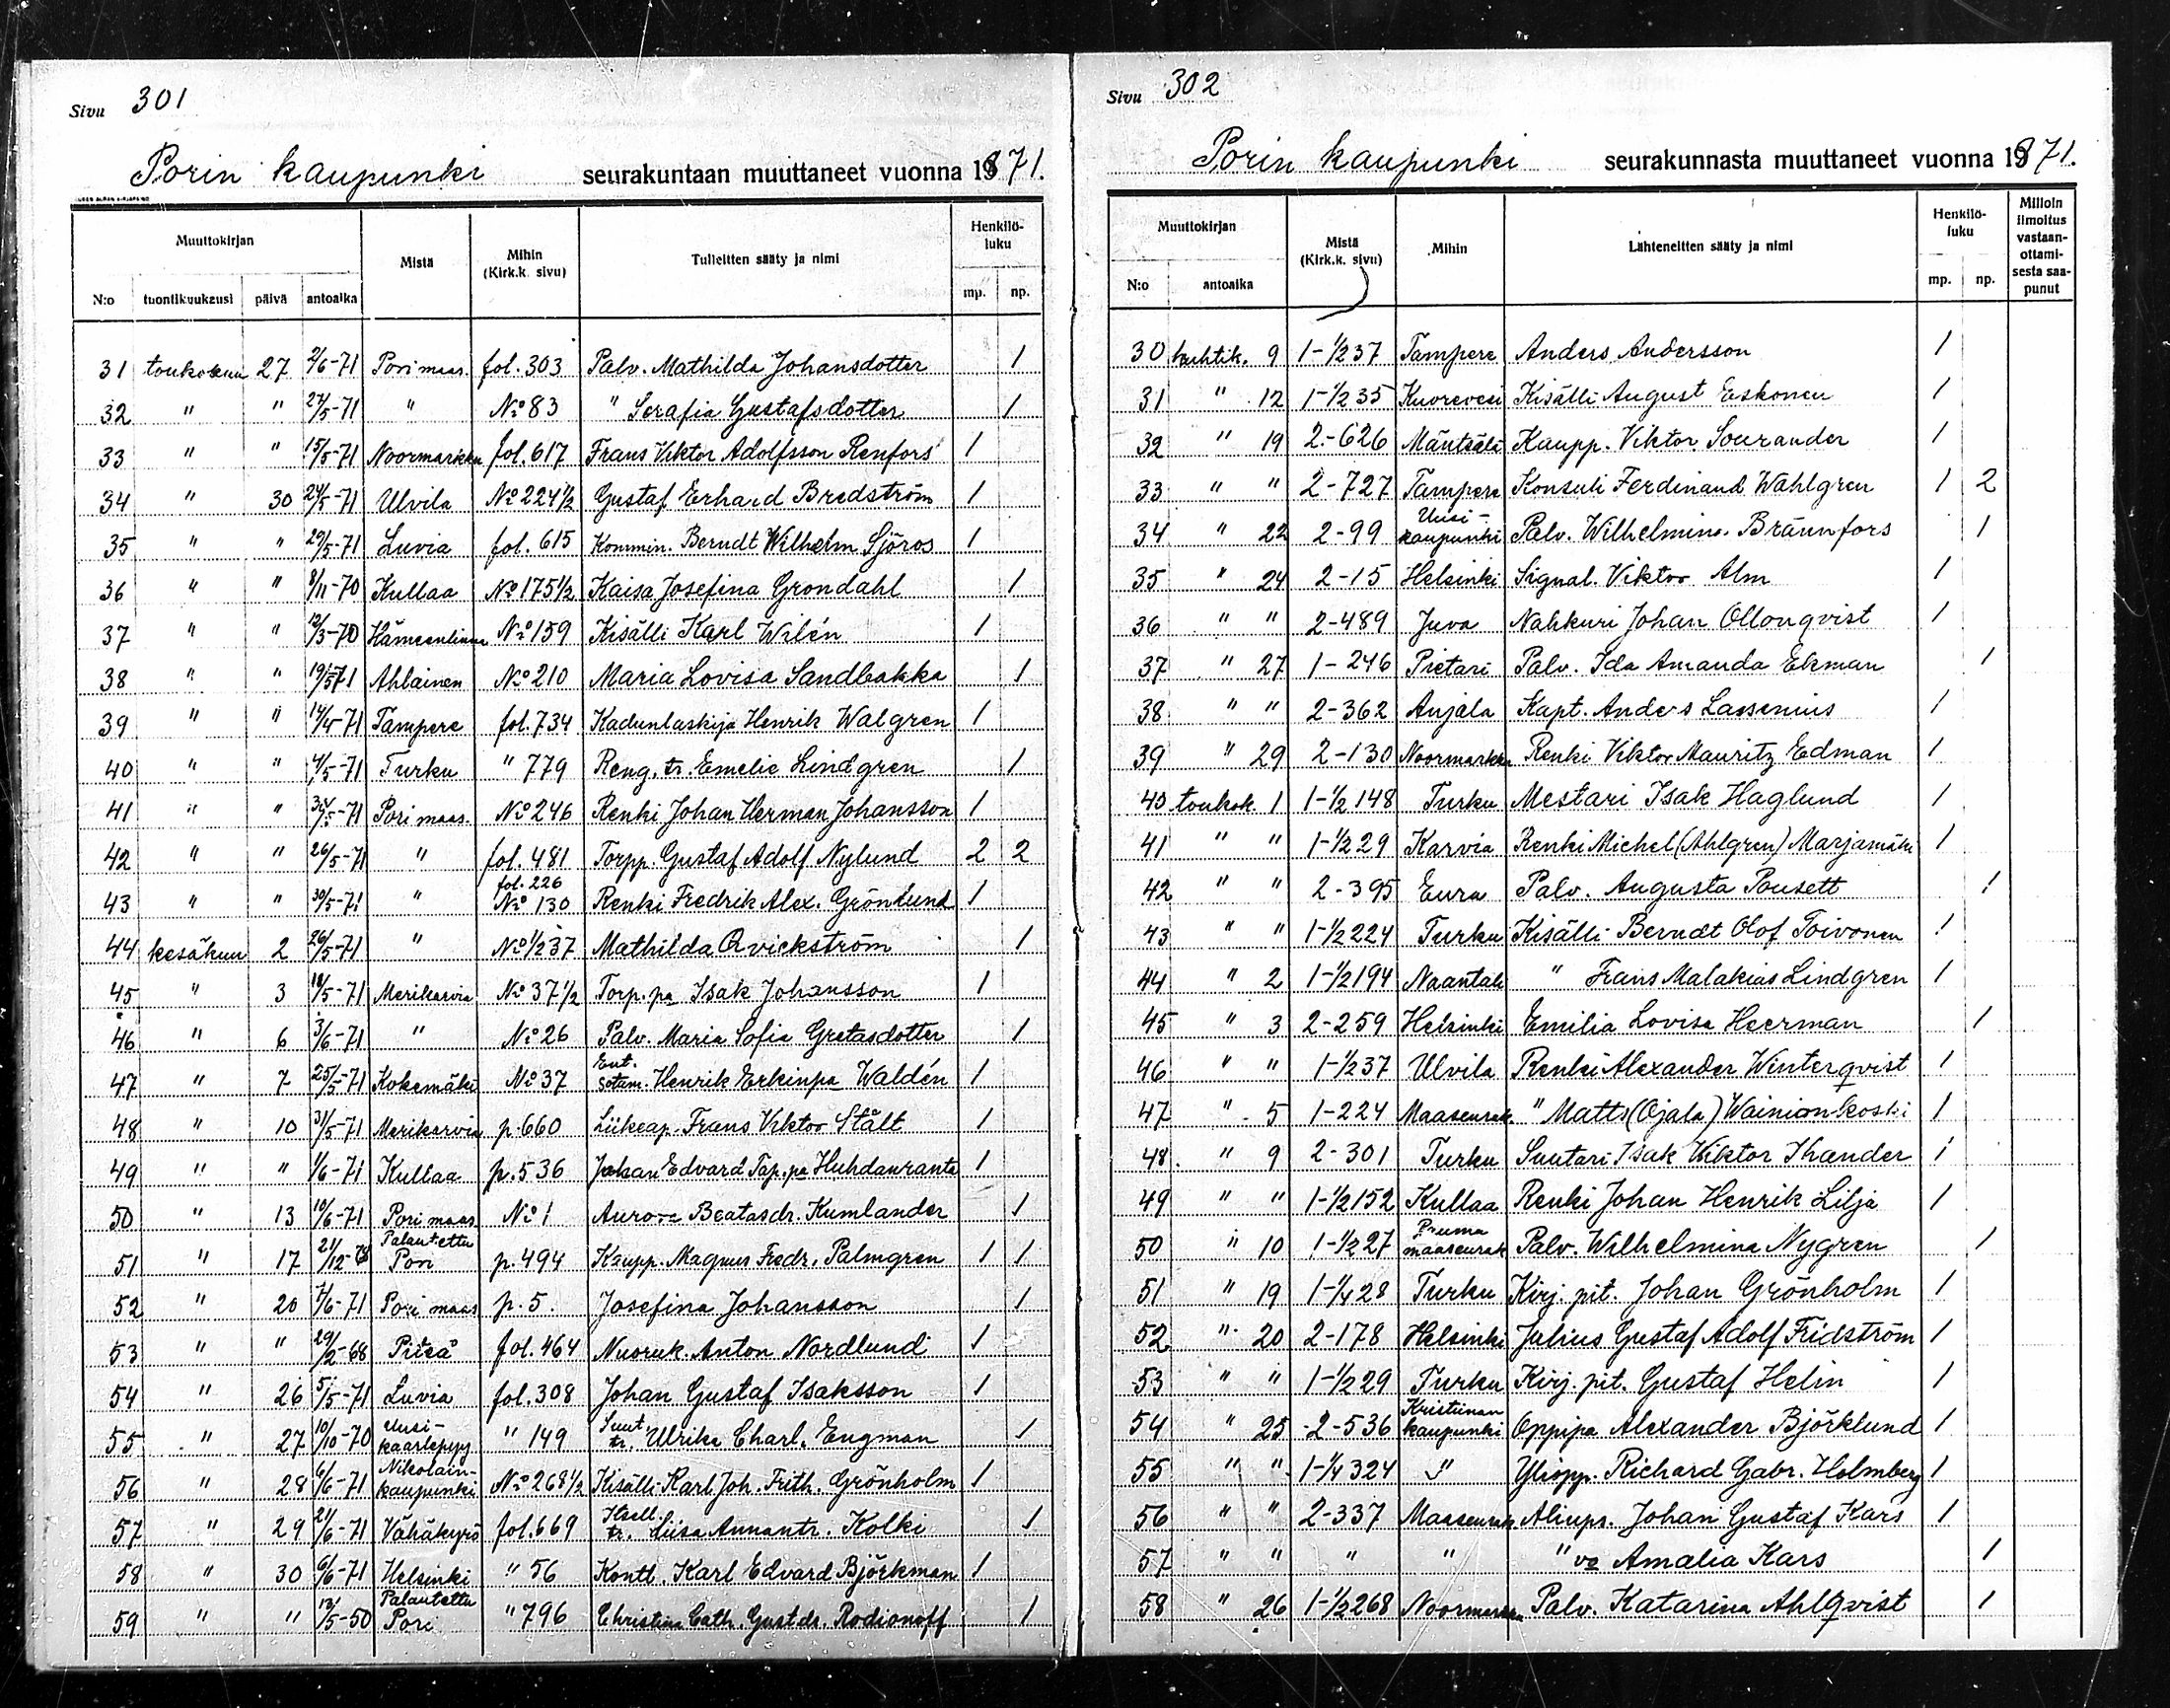 Sivu 301
Porin kaupunki seurakuntaan muuttaneet vuonna 1871.
Muuttokirjan Mistä Mihin (Kirk.k. sivu) Tulleitten sääty ja nimi Henkilö-luku
N:o tuontikuukausi päivä antoaika mp. np.
31 toukokuu 27 2/6-71 Pori maas. fol. 303 Palv. Mathilda Johansdotter 1
32 " " 27/5-71 " No 83 " Serafia Gustafsdotter 1
33 " " 15/5-71 Noormarkku fol. 617 Frans Viktor Adolfsson Renfors 1
34 " 30 24/5-71 Ulvila No 224 1/2 Gustaf Erhard Bredström 1
35 " " 29/5-71 Luvia fol. 615 Kommin. Berndt Wilhelm Sjöros 1
36 " " 8/11-70 Kullaa No 175 1/2 Kaisa Josefina Grondahl 1
37 " " 12/3-70 Hämeenlinna No 159 Kisälli Karl Wilén 1
38 " " 19/5-71 Ahlainen No 210 Maria Lovisa Sandbakka 1
39 " " 14/4-71 Tampere fol. 734 Kadunlaskija Henrik Walgren 1
40 " " 4/5-71 Turku " 779 Reng. tr. Emelie Lindgren 1
41 " " Pori maas. No 246 Renki Johan Herman Johansson 1
42 " " 26/5-71 " fol. 481 Torpp. Gustaf Adolf Nylund 2 2
43 " " 30/5-71 " fol. 226 No 130 Renki Fredrik Alex. Grönlund 1
44 kesäkuu 2 26/5-71 " No 1/2 37 Mathilda Qvickström 1
45 " 3 18/5-71 Merikarvia No 37 1/2 Torp. pa Isak Johansson 1
46 " 6 3/6-71 " No 26 Palv. Maria Sofia Gretasdotter 1
47 " 7 25/5-71 Kokemäki No 37 Ent. sotam. Henrik Erkinpa Waldén 1
48 " 10 31/5-71 Merikarvia p. 660 Liikeap. Frans Viktor Stålt 1
49 " " 1/6-71 Kullaa p. 536 Johan Edvard Tap. pa Huhdanranta 1
50 " 13 10/6-71 Pori maas. No 1 Aurora Beatasdr. Kumlander 1
51 " 17 Palautettu Pori p. 494 Kaupp. Magnus Fredr. Palmgren 1 1
52 " 20 7/6-71 Pori maas p. 5. Josefina Johansson 1
53 " " 29/2-68 Piteå fol. 464 Nuoruk. Anton Nordlund 1
54 " 26 5/5-71 Luvia fol. 308 Johan Gustaf Isaksson 1
55 " 27 10/10-70 Uusi-kaarlepyy " 149 Suut. tr. Ulrika Charl. Engman 1
56 " 28 6/6-71 Nikolain-kaupunki No 268 1/2 Kisälli Karl Joh. Frith. Grönholm 1
57 " 29 21/6-71 Vähäkyrö fol. 669 Itsell. tr. Liisa Annantr. Kolki 1
58 " 30 6/6-71 Helsinki " 56 Kontt. Karl Edvard Björkman 1
59 " " 13/5-50 Palautettu Pori " 796 Christina Cath. Gustdr. Rodionoff 1
Sivu 302
Porin kaupunki seurakunnasta muuttaneet vuonna 1871.
Muuttokirjan Mistä (Kirk.k. sivu) Mihin Lähteneitten sääty ja nimi Henkilö-luku Milloin ilmoitus vastaan-ottami-sesta saa-punut
N:o antoaika mp. np.
30 huhtik. 9 1-1/2 37 Tampere Anders Andersson 1
31 " 12 1-1/2 35 Kuorevesi Kisälli August Eskonen 1
32 " 19 2-626 Mäntsälä Kaupp. Viktor Sourander 1
33 " " 2-727 Tampere Konsuli Ferdinand Wahlgren 1 2
34 " 22 2-99 Uusi-kaupunki Palv. Wilhelmina Brännfors 1
35 " 24 2-15 Helsinki Signal. Viktor Alm 1
36 " " 2-489 Juva Nahkuri Johan Ollonqvist 1
37 " 27 1-246 Pietari Palv. Ida Amanda Ekman 1
38 " " 2-362 Anjala Kapt. Anders Lassenius 1
39 " 29 2-130 Noormarkku Renki Viktor Mauritz Edman 1
40 toukok. 1 1-1/2 148 Turku Mestari Isak Haglund 1
41 " " 1-1/2 29 Karvia Renki Michel (Ahlgren) Marjamäki 1
42 " " 2-395 Eura Palv. Augusta Pousett 1
43 " " 1-1/2 224 Turku Kisälli Berndt Olof Toivonen 1
44 " 2 1-1/2 194 Naantali " Frans Malakias Lindgren 1
45 " 3 2-259 Helsinki Emilia Lovisa Heerman 1
46 " " 1-1/2 37 Ulvila Renki Alexander Winterqvist 1
47 " 5 1-224 Maaseurak. " Matts (Ojala) Wainionkoski 1
48 " 9 2-301 Turku Suutari Isak Viktor Ihander 1
49 " " 1-1/2 152 Kullaa Renki Johan Henrik Lilja 1
50 " 10 1-1/2 27 maaseurak Palv. Wilhelmina Nygren 1
51 " 19 1-1/4 28 Turku Kirj. pit. Johan Grönholm 1
52 " 20 2-178 Helsinki Julius Gustaf Adolf Fridström 1
53 " " 1-1/2 29 Turku Kirj. pit. Gustaf Helin 1
54 " 25 2-536 Kristiinan kaupunki Oppipa Alexander Björklund 1
55 " " 1-1/4 324 " Yliopp. Richard Gabr. Holmberg 1
56 " " 2-337 Maaseurak. Aliups. Johan Gustaf Kars 1
57 " " " " " va Amalia Kars 1
58 " 26 1-1/2 268 Noormarkku Palv. Katarina Ahlqvist 1